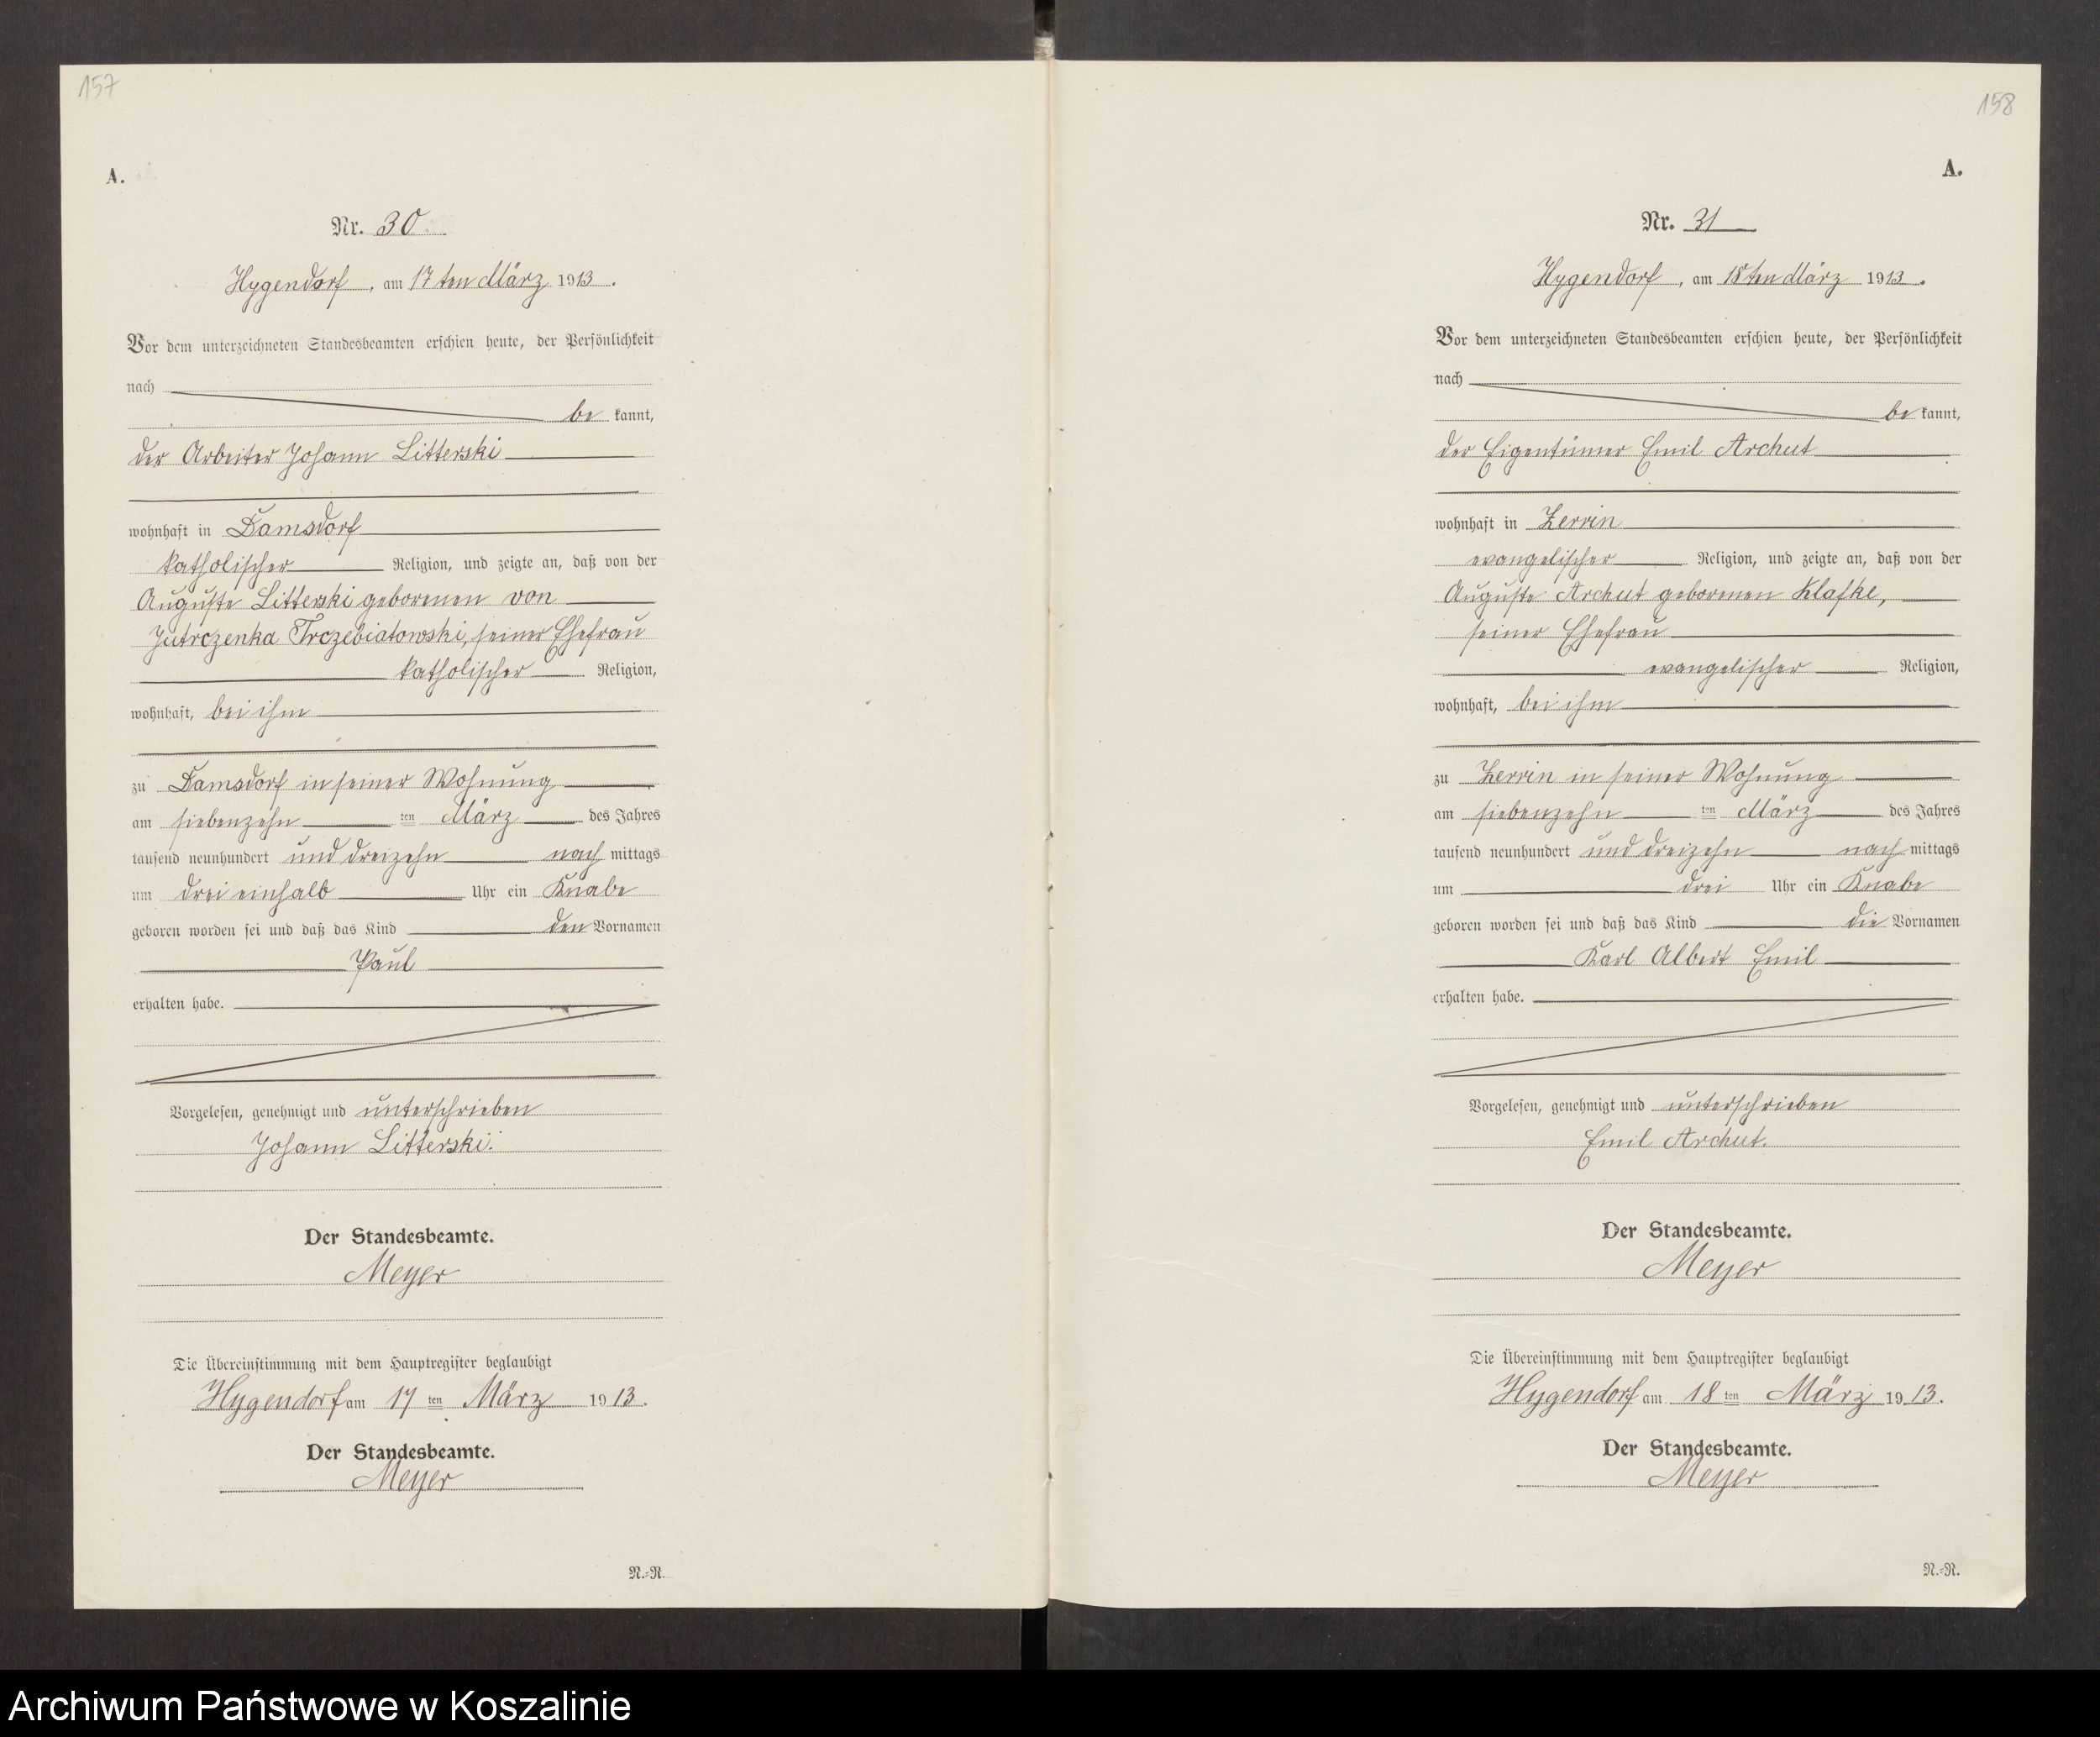 157
A.
Nr. 30
Hygendorf, am 17ten März 1913.
Vor dem unterzeichneten Standesbeamten erschien heute, der Persönlichkeit
nach
be kannt,
der Arbeiter Johann Litterski
wohnhaft in Damsdorf
katholischer Religion, und zeigte an, daß von der
Auguste Litterski geborenen von
Jutrczenka Trczebiatowski, seiner Ehefrau
katholischer Religion,
wohnhaft, bei ihm
zu Damsdorf in seiner Wohnung
am siebenzehn ten März des Jahres
tausend neunhundert und dreizehn nach mittags
um drei einhalb Uhr ein Knabe
geboren worden sei und daß das Kind den Vornamen
Paul
erhalten habe.
Vorgelesen, genehmigt und unterschrieben
Johann Litterski.
Der Standesbeamte.
Meyer
Die Übereinstimmung mit dem Hauptregister beglaubigt
Hygendorf am 17 ten März 1913.
Der Standesbeamte.
Meyer
N.=R.
158
A.
Nr. 31
Hygendorf, am 18ten März 1913.
Vor dem unterzeichneten Standesbeamten erschien heute, der Persönlichkeit
nach
be kannt,
der Eigentümer Emil Archut
wohnhaft in Zerrin
evangelischer Religion, und zeigte an, daß von der
Auguste Archut geborenen Klafke,
seiner Ehefrau
evangelischer Religion,
wohnhaft, bei ihm
zu Zerrin in seiner Wohnung
am siebenzehn ten März des Jahres
tausend neunhundert und dreizehn nach mittags
um drei Uhr ein Knabe
geboren worden sei und daß das Kind die Vornamen
Karl Albert Emil
erhalten habe.
Vorgelesen, genehmigt und unterschrieben
Emil Archut.
Der Standesbeamte.
Meyer
Die Übereinstimmung mit dem Hauptregister beglaubigt
Hygendorf am 18 ten März 1913.
Der Standesbeamte.
Meyer
N.=R.
Archiwum Państwowe w Koszalinie